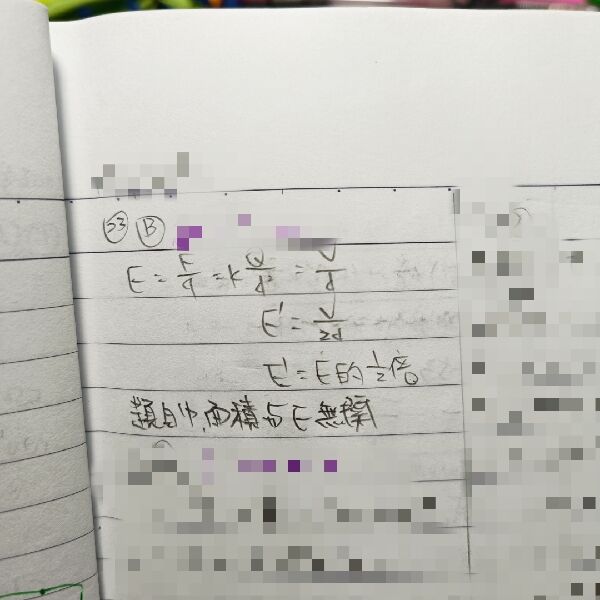 ㉓ Ⓑ
E = F/q = K Q/d² = V/d
E' = V/2d
E' = E的1/2倍。
題目中,面積与E無關